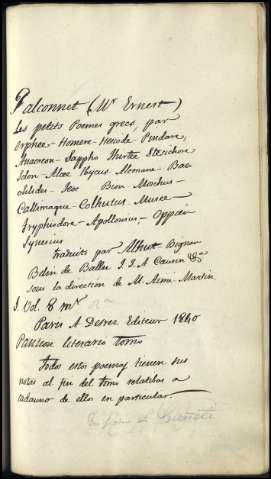 Falconnet (Mr Ernest)
Les petits Poemes grecs, par
Orphee - Homere - Hesiode - Pindare,
Anacreon - Sappho Tirtee Stesichore
Solon - Alcee Ibycus Alcmane - Bac
chilides - Teos Bion Moschus -
Callimaque - Coluthus - Musee -
Tryphiodore - Apollonius - Oppien
Synesius
traduits par Albert Bignan
Belin de Ballu J. J. A Caussin &a
sous la direction de M. Aimé-Martin
1. Vol. 8 mr
Paris A Desrez Editeur 1840
Panteon literario tomo
Todos estos poemas tienen sus
notas al fin del tomo relatibas a
cadauno de ello en particular.